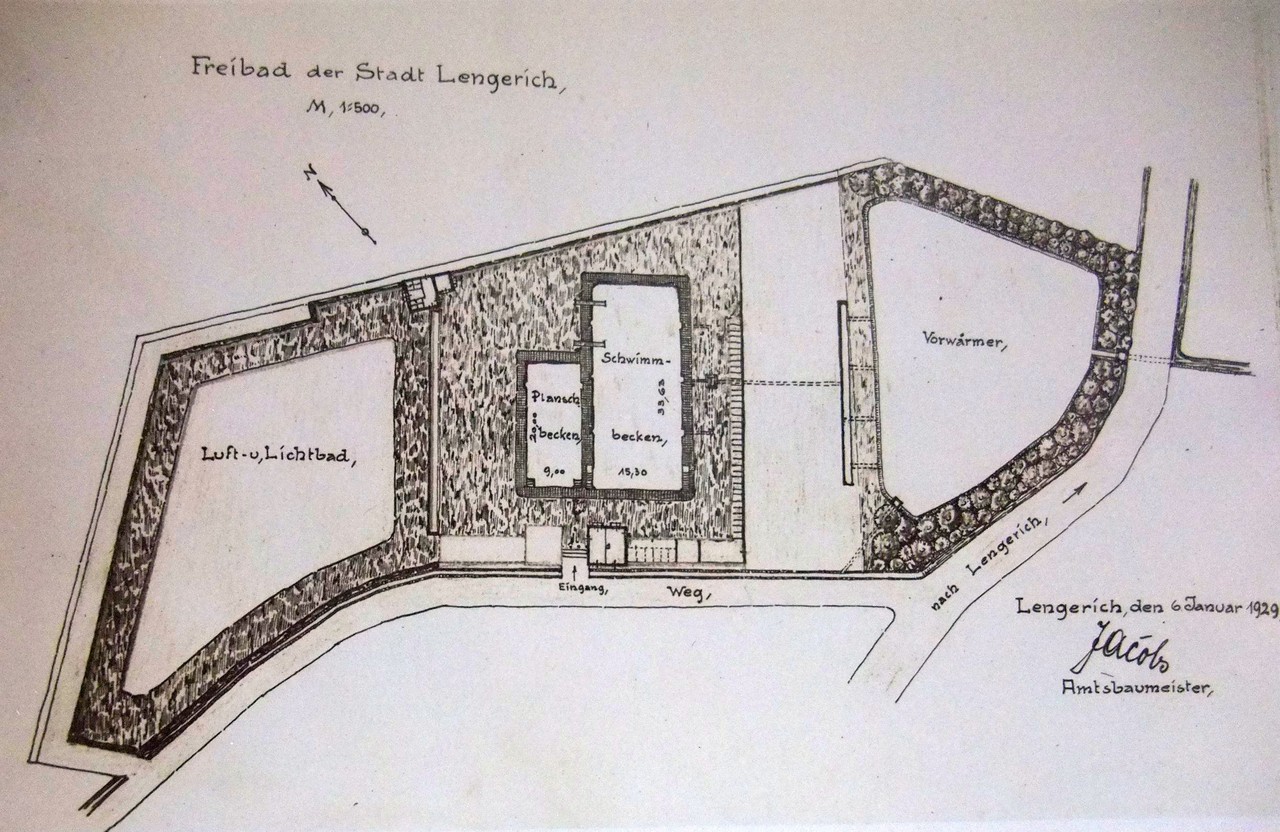 Freibad der Stadt Lengerich,
M, 1:500,
N
Luft-u, Lichtbad,
Plansch
becken,
20,00
9,00
Schwimm-
becken,
33,63
15,30
Vorwärmer,
Eingang,
Weg,
nach Lengerich,
Lengerich, den 6 Januar 1929
Jacobs
Amtsbaumeister,